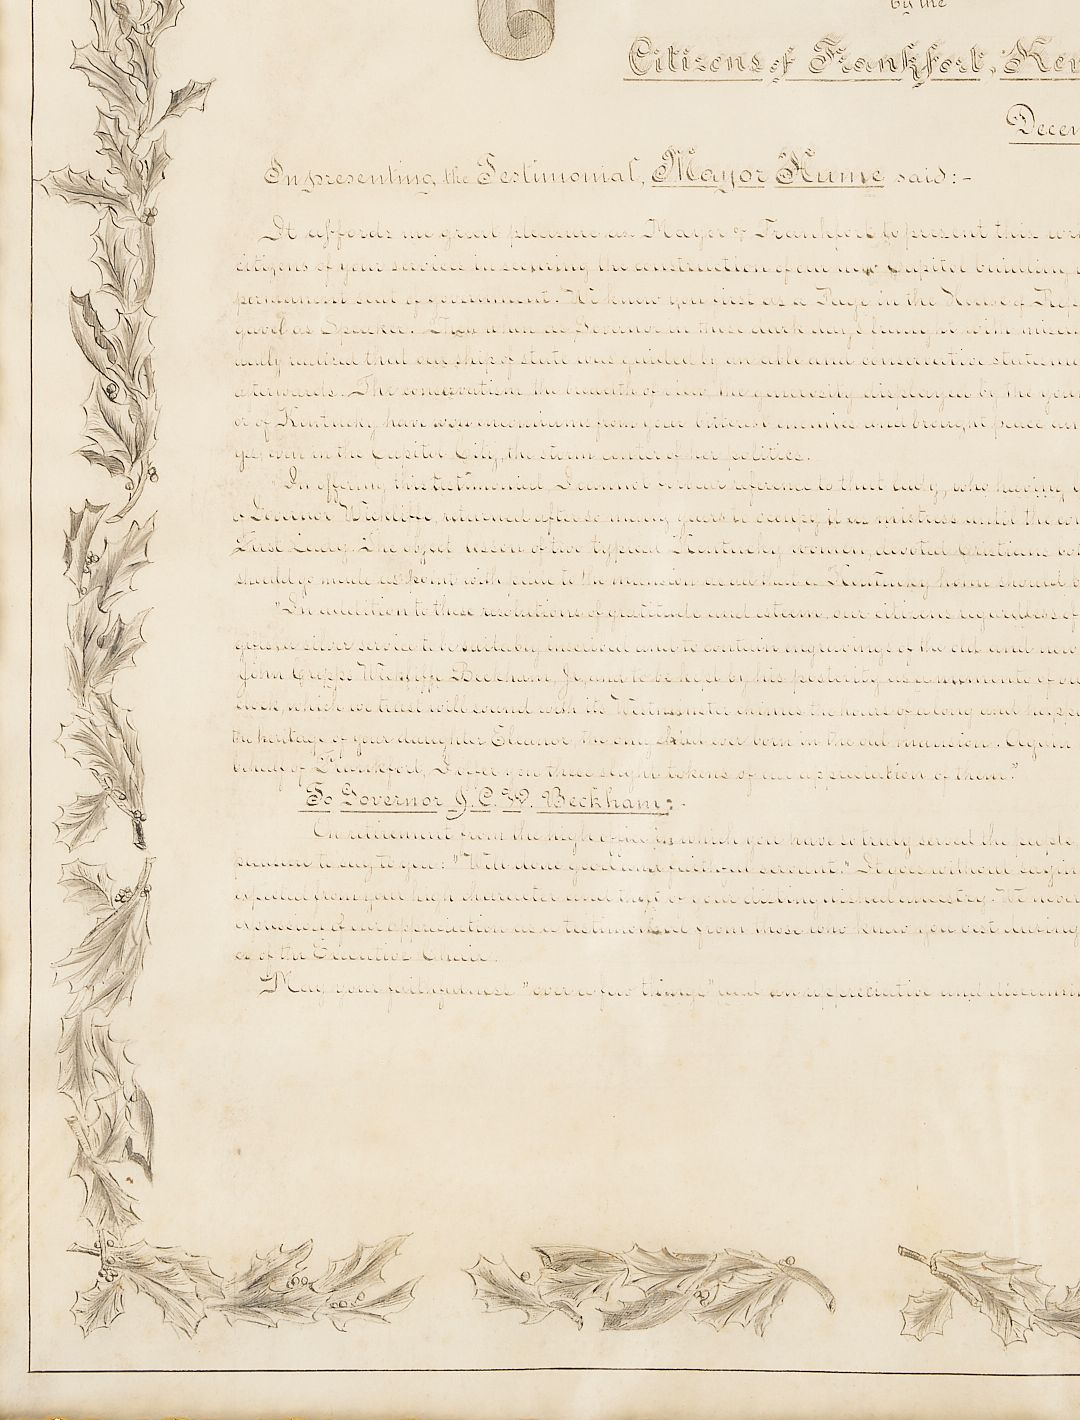 by the
Citizens of Frankfort, Ken
Decem
In presenting the Testimonial, Mayor Hume said:-
It affords me great pleasure as Mayor of Frankfort to present this
citizens of your service in securing the construction of our new Capitol building
permanent seat of government. We knew you first as a Page in the House of Rep
gavel as Speaker. Then when as Governor in those dark days fraught with
realized that our ship of state was guided by an able and conservative statesm
afterwards. The conservatism the breadth of view the generosity displayed by the you
or of Kentucky have won encomiums from your bitterest enemies and brought peace
even in the Capitol City, the storm center of her politics.
"In offering this testimonial, I cannot forbear reference to that lady, who having
Governor Wickliffe, returned after so many years to occupy it as mistress until the
First Lady. The object lesson of two typical Kentucky women, devoted Christians
should go made us point with pride to the mansion as all that a Kentucky home should b
"In addition to these resolutions of gratitude and esteem, our citizens regardless of
you, a silver service to be suitably inscribed and to contain engravings of the old and new
John Cripps Wickliffe Beckham, Jr, and to be kept by his posterity as a memento of
clock, which we trust will sound with its Westminster chimes the hours of a long and happy
the heritage of your daughter Eleanor, the only child ever born in the old mansion. Again
behalf of Frankfort, I offer you these slight tokens of our appreciation of them."
To Governor J. C. W. Beckham:-
On retirement from the high office in which you have so truly served the people
to say to you: "Well done good and faithful servant." It goes without sayin
expected from your high character and that of your distinguished ancestry. We never
expression of our appreciation as a testimonial from those who know you best during
of the Executive Chair.
May your faithfulness "over a few things" and an appreciative and discerni